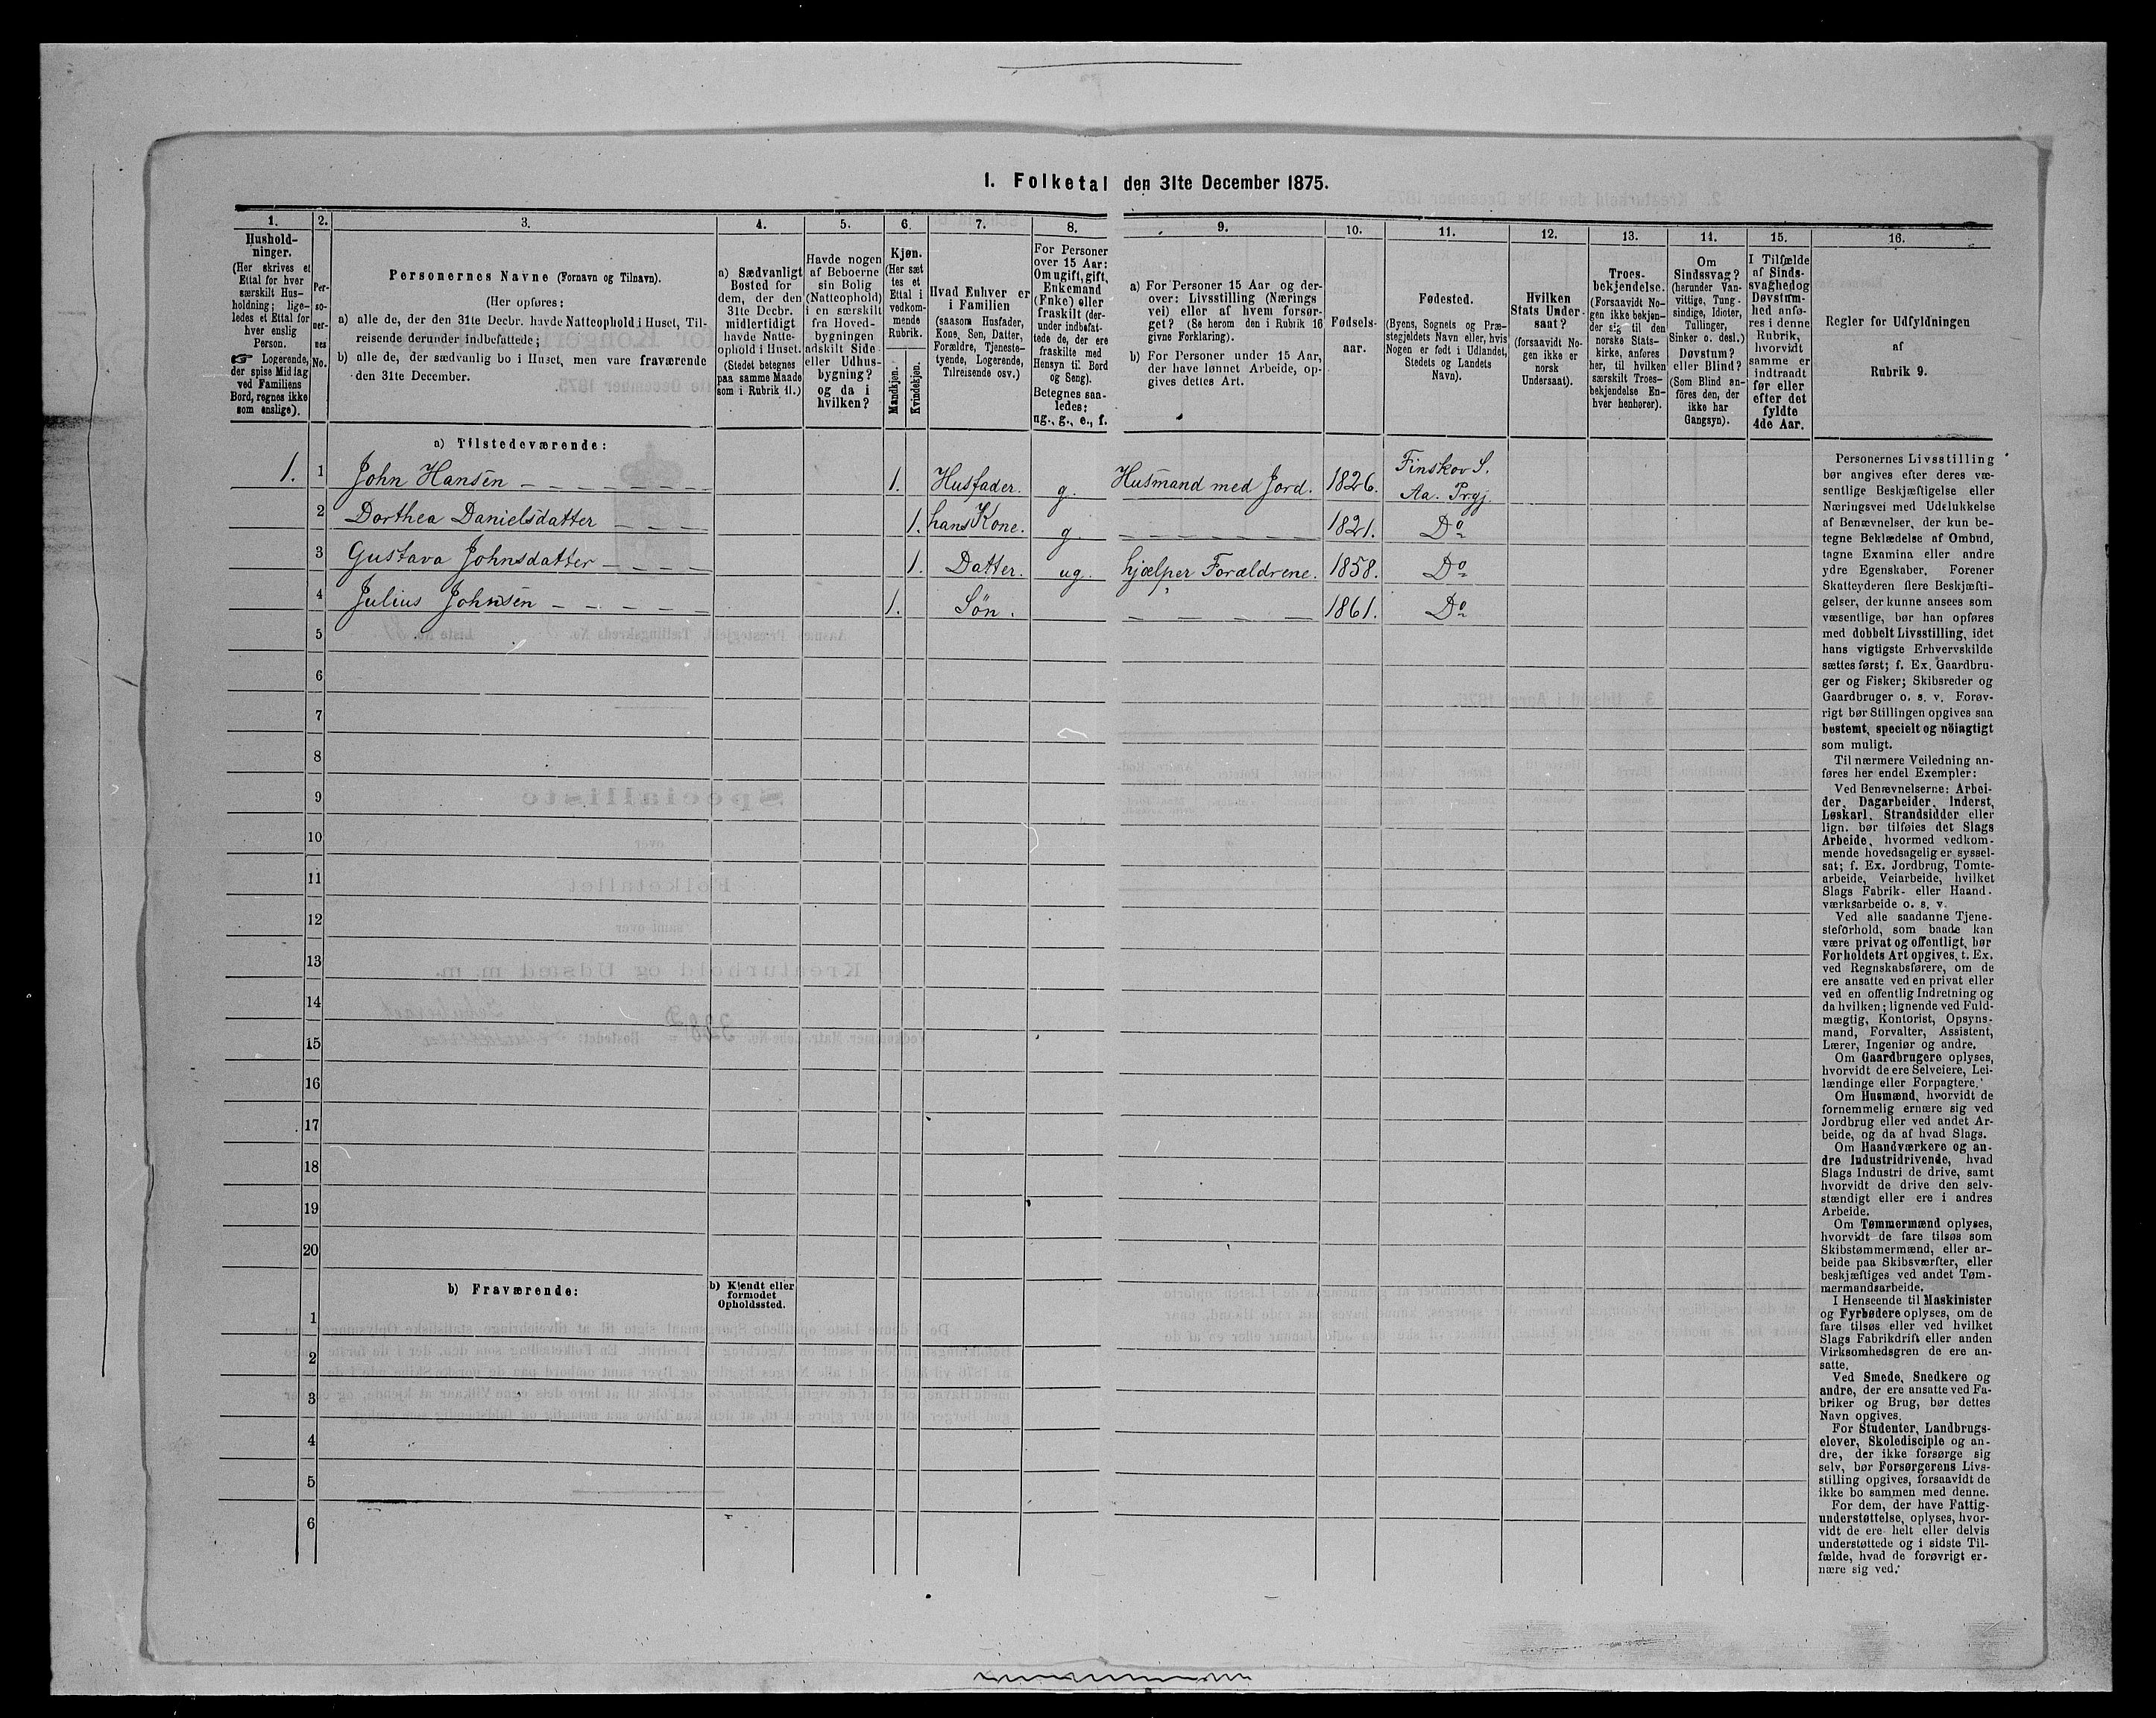 1. Folketal den 31te December 1875.
1.
2.
3.
4.
5.
6.
7.
8.
9.
10.
11.
12.
13.
14.
15.
16.
Hushold-
ninger.
(Her skrives et
Ettal for hver
særskilt Hus-
holdning; lige-
ledes et Ettal for
hver enslig
Person.
☞ Logerende,
der spise Middag
ved Familiens
Bord, regnes ikke
som enslige).
Per-
so-
ner-
nes
No.
Personernes Navne (Fornavn og Tilnavn).
(Her opføres:
a) alle de, der den 31te Decbr. havde Natteophold i Huset, Til-
reisende derunder indbefattede;
b) alle de, der sædvanlig bo i Huset, men vare fraværende
den 31te December.
a) Sædvanligt
Bosted for
dem, der den
31te Decbr.
midlertidigt
havde Natte-
ophold i Huset.
(Stedet betegnes
paa samme Maade
som i Rubrik 11.)
Havde nogen
af Beboerne
sin Bolig
(Natteophold)
i en særskilt
fra Hoved-
bygningen
adskilt Side-
eller Udhus-
bygning?
og da i
hvilken?
Kjøn.
(Her sæt
tes et
Ettal i
vedkom-
mende
Rubrik.
Mandkjøn.
Kvindekjøn.
Hvad Enhver er
i Familien
(saasom Husfader,
Kone, Søn, Datter,
Forældre, Tjeneste-
tyende, Logerende,
Tilreisende osv.)
For Personer
over 15 Aar:
Om ugift, gift,
Enkemand
(Enke) eller
fraskilt (der-
under indbefat-
tede de, der ere
fraskilte med
Hensyn til Bord
og Seng).
Betegnes saa-
ledes:
ug., g., e., f.
a) For Personer 15 Aar og der-
over: Livsstilling (Nærings
vei) eller af hvem forsør-
get? (Se herom den i Rubrik 16
givne Forklaring).
b) For Personer under 15 Aar,
der have lønnet Arbeide, op-
gives dettes Art.
Fødsels-
aar.
Fødested.
(Byens, Sognets og Præ-
stegjeldets Navn eller, hvis
Nogen er født i Udlandet,
Stedets og Landets
Navn).
Hvilken
Stats Under-
saat?
(forsaavidt No-
gen ikke er
norsk
Undersaat).
Troes-
bekjendelse.
(Forsaavidt No-
gen ikke bekjen-
der sig til den
norske Stats-
kirke, anføres
her, til hvilken
særskilt Troes-
bekjendelse En-
hver henhører).
Om
Sindssvag?
(herunder Van-
vittige, Tung-
sindige, Idioter,
Tullinger,
Sinker o. desl.)
Døvstum?
eller Blind?
(Som Blind an-
føres den, der
ikke har
Gangsyn).
I Tilfælde
af Sinds-
svaghed og
Døvstum-
hed anfø-
res i denne
Rubrik,
hvorvidt
samme er
indtraadt
før eller
efter det
fyldte
4de Aar.
Regler for Udfyldningen
af
Rubrik 9.
a) Tilstedeværende:
1. 1 John Hansen 1. Husfader. g. Husmand med Jord. 1826. Finskov S. Aa. Prgj.
2 Dorthea Danielsdatter 1. hans Kone. g. 1821. Do
3 Gustava Johnsdatter 1. Datter. ug. hjælper Forældrene. 1858. Do
4 Julius Johnsen 1. Søn. 1861. Do
5
6
7
8
9
10
11
12
13
14
15
16
17
18
19
20
b) Fraværende:
b) Kjendt eller
formodet
Opholdssted.
1
2
3
4
5
6
Personernes Livsstilling
bør angives efter deres væ-
sentlige Beskjæftigelse eller
Næringsvei med Udelukkelse
af Benævnelser, der kun be-
tegne Beklædelse af Ombud,
tagne Examina eller andre
ydre Egenskaber. Forener
Skatteyderen flere Beskjæfti-
gelser, der kunne ansees som
væsentlige, bør han opføres
med dobbelt Livsstilling, idet
hans vigtigste Erhvervskilde
sættes først; f. Ex. Gaardbru-
ger og Fisker; Skibsreder og
Gaardbruger o. s. v. Forøv-
rigt bør Stillingen opgives saa
bestemt, specielt og nöiagtigt
som muligt.
Til nærmere Veiledning an-
føres her endel Exempler:
Ved Benævnelserne: Arbei-
der, Dagarbeider, Inderst,
Løskarl, Strandsidder eller
lign. bør tilføies det Slags
Arbeide, hvormed vedkom-
mende hovedsagelig er syssel-
sat; f. Ex. Jordbrug, Tomte-
arbeide, Veiarbeide, hvilket
Slags Fabrik- eller Haand-
værksarbeide o. s. v.
Ved alle saadanne Tjene-
steforhold, som baade kan
være privat og offentligt, bør
Forholdets Art opgives, t. Ex.
ved Regnskabsførere, om de
ere ansatte ved en privat eller
ved en offentlig Indretning og
da hvilken; lignende ved Fuld-
mægtig, Kontorist, Opsyns-
mand, Forvalter, Assistent,
Lærer, Ingeniør og andre.
Om Gaardbrugere oplyses,
hvorvidt de ere Selveiere, Lei-
lændinge eller Forpagtere.
Om Husmænd, hvorvidt de
fornemmelig ernære sig ved
Jordbrug eller ved andet Ar-
beide, og da af hvad Slags.
Om Haandværkere og an-
dre Industridrivende, hvad
Slags Industri de drive, samt
hvorvidt de drive den selv-
stændigt eller ere i andres
Arbeide.
Om Tømmermænd oplyses,
hvorvidt de fare tilsøs som
Skibstømmermænd, eller ar-
beide paa Skibsværfter, eller
beskjæftiges ved andet Tøm-
mermandsarbeide.
I Henseende til Maskinister
og Fyrbødere oplyses, om de
fare tilsøs eller ved hvilket
Slags Fabrikdrift eller anden
Virksomhedsgren de ere an-
satte.
Ved Smede, Snedkere og
andre, der ere ansatte ved Fa-
briker og Brug, bør dettes
Navn opgives.
For Studenter, Landbrugs-
elever, Skoledisciple og an-
dre, der ikke forsørge sig
selv, bør Forsørgerens Livs-
stilling opgives, forsaavidt de
ikke bo sammen med denne.
For dem, der have Fattig-
understøttelse, oplyses, hvor-
vidt de ere helt eller delvis
understøttede og i sidste Til-
fælde, hvad de forøvrigt er-
nære sig ved.